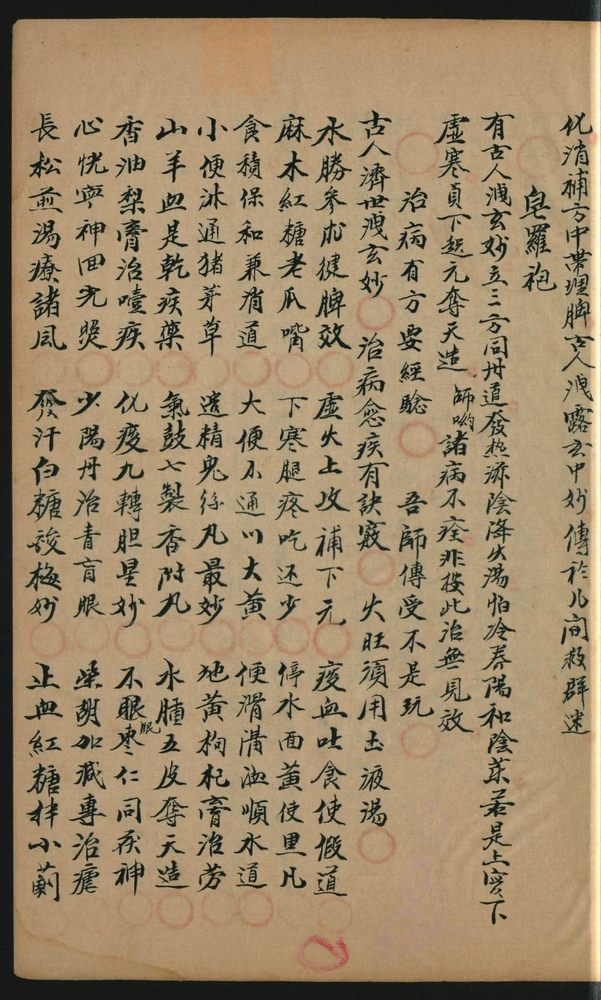 化消補方中帶理脾古人洩露玄中妙傳於凡間救群迷
皂羅袍
有古人洩玄妙立三方同丹道發熱添陰降火湯怕冷春陽和陰藥若是上實下
虛寒貞下起元奪天造師喻諸病不痊非按此治無見效
治病有方要經驗 吾師傳受不是玩
古人濟世洩玄妙 治病愈疾有訣竅 火旺須用玉液湯
水勝參朮健脾效 虛火上攻補下元 痰血吐食使假道
麻木紅糖老瓜嘴 下寒腿疼吃还少 停水面黃使黑凡
食積保和兼消道 大便不通川大黃 便滑清濁順水道
小便淋通猪芽草 遺精兔絲丸最妙 地黃枸杞膏治劳
山羊血是乾疾藥 氣鼓七製香附丸 水腫五皮奪天造
香油梨膏治噎疾 化痰九轉胆星妙 不眠枣仁同茯神
心恍寧神回光照 少陽丹治青盲眼 柴胡加減專治瘧
長松煎湯療諸風 發汗白糖酸梅妙 止血紅糖拌小薊